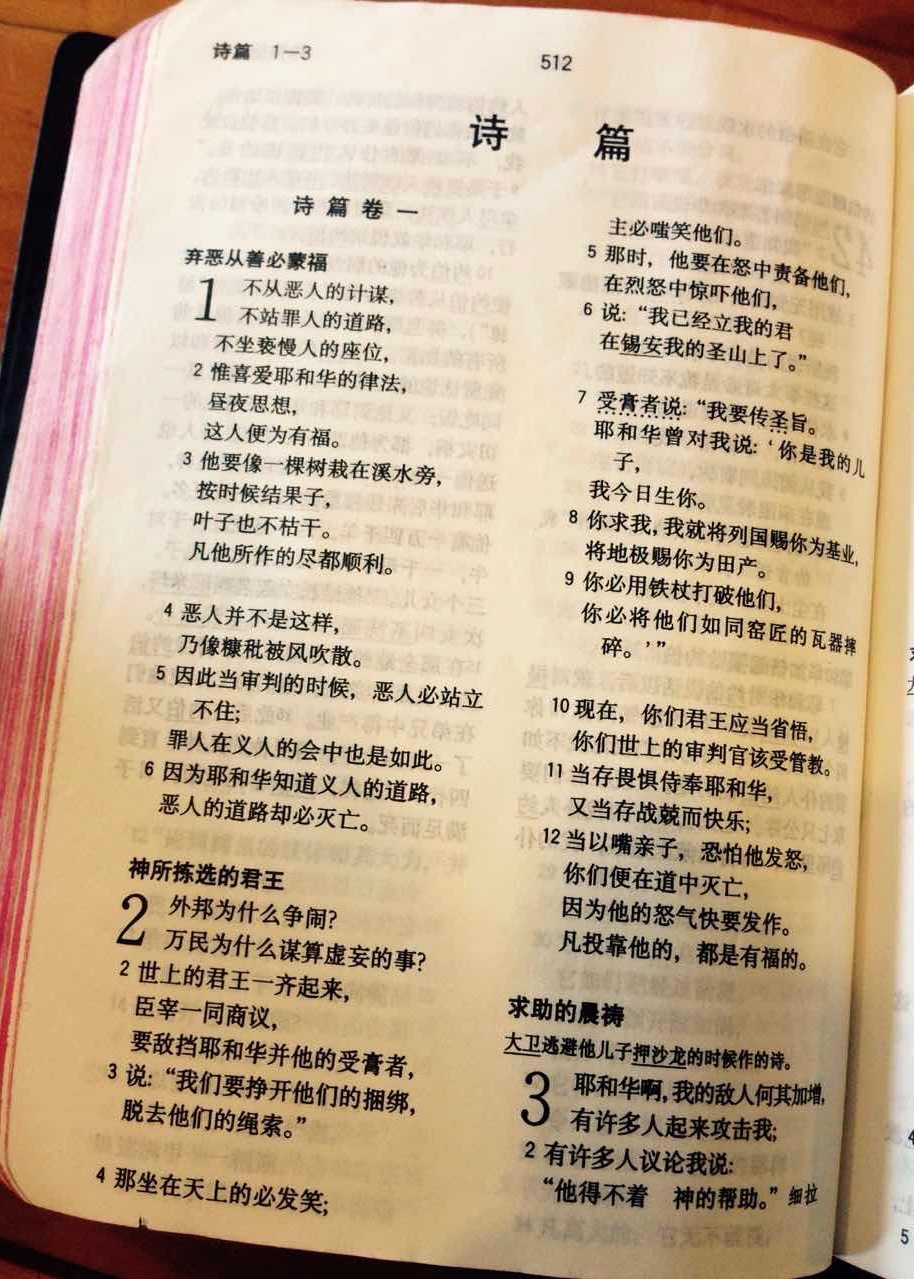 诗篇 1—3
512
诗 篇
诗篇卷一
弃恶从善必蒙福
1 不从恶人的计谋，
不站罪人的道路，
不坐亵慢人的座位，
2 惟喜爱耶和华的律法，
昼夜思想，
这人便为有福。
3 他要像一棵树栽在溪水旁，
按时候结果子，
叶子也不枯干。
凡他所作的尽都顺利。
4 恶人并不是这样，
乃像糠秕被风吹散。
5 因此当审判的时候，恶人必站立
不住；
罪人在义人的会中也是如此。
6 因为耶和华知道义人的道路，
恶人的道路却必灭亡。
神所拣选的君王
2 外邦为什么争闹？
万民为什么谋算虚妄的事？
2 世上的君王一齐起来，
臣宰一同商议，
要敌挡耶和华并他的受膏者，
3 说：“我们要挣开他们的捆绑，
脱去他们的绳索。”
4 那坐在天上的必发笑；
主必嗤笑他们。
5 那时，他要在怒中责备他们，
在烈怒中惊吓他们，
6 说：“我已经立我的君
在锡安我的圣山上了。”
7 受膏者说：“我要传圣旨。
耶和华曾对我说：‘你是我的儿
子，
我今日生你。
8 你求我，我就将列国赐你为基业，
将地极赐你为田产。
9 你必用铁杖打破他们，
你必将他们如同窑匠的瓦器摔
碎。’”
10 现在，你们君王应当省悟，
你们世上的审判官该受管教。
11 当存畏惧侍奉耶和华，
又当存战兢而快乐；
12 当以嘴亲子，恐怕他发怒，
你们便在道中灭亡，
因为他的怒气快要发作。
凡投靠他的，都是有福的。
求助的晨祷
大卫逃避他儿子押沙龙的时候作的诗。
3 耶和华啊，我的敌人何其加增，
有许多人起来攻击我；
2 有许多人议论我说：
“他得不着 神的帮助。”细拉